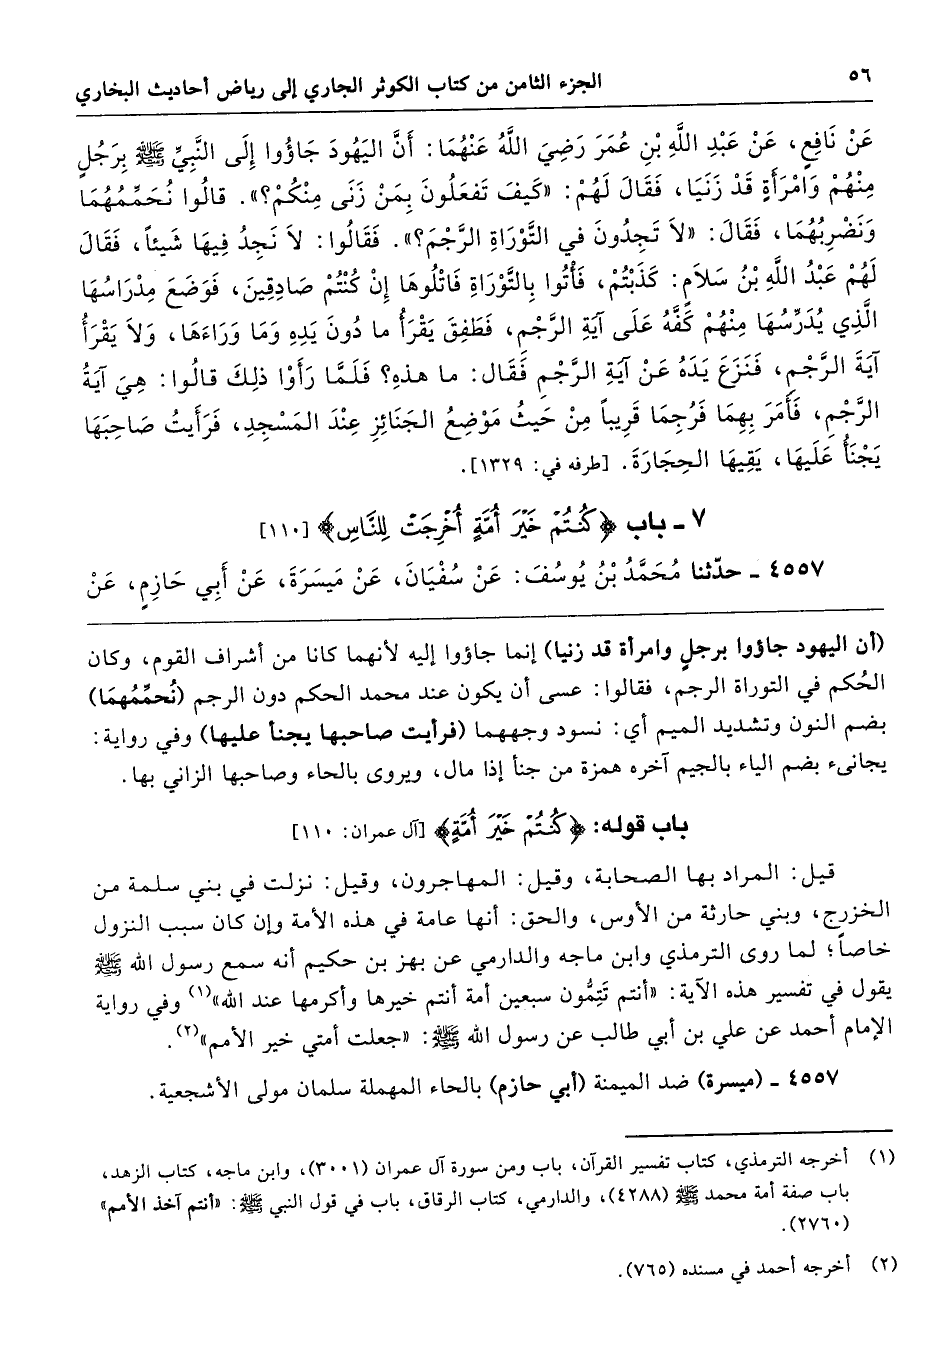 ٥٦
الجزء الثامن من كتاب الكوثر الجاري إلى رياض أحاديث البخاري
عَنْ نَافِعٍ، عَنْ عَبْدِ اللَّهِ بْنِ عُمَرَ رَضِيَ اللَّهُ عَنْهُمَا: أَنَّ اليَهُودَ جَاؤُوا إِلَى النَّبِيِّ ﷺ بِرَجُلٍ
مِنْهُمْ وَامْرَأَةٍ قَدْ زَنَيَا، فَقَالَ لَهُمْ: «كَيفَ تَفعَلُونَ بِمَنْ زَنَى مِنْكُمْ؟». قالُوا نُحَمِّمُهُمَا
وَنَضْرِبُهُمَا، فَقَالَ: «لاَ تَجِدُونَ في التَّوْرَاةِ الرَّجْمَ؟». فَقَالُوا: لاَ نَجِدُ فِيهَا شَيئاً، فَقَالَ
لَهُمْ عَبْدُ اللَّهِ بْنُ سَلاَمٍ: كَذَبْتُمْ، فَأْتُوا بِالتَّوْرَاةِ فَاتْلُوهَا إِنْ كُنْتُمْ صَادِقِينَ، فَوَضَعَ مِدْرَاسُهَا
الَّذِي يُدَرِّسُهَا مِنْهُمْ كَفَّهُ عَلَى آيَةِ الرَّجْمِ، فَطَفِقَ يَقْرَأُ ما دُونَ يَدِهِ وَمَا وَرَاءَهَا، وَلاَ يَقْرَأُ
آيَةَ الرَّجْمِ، فَنَزَعَ يَدَهُ عَنْ آيَةِ الرَّجْمِ فَقَالَ: ما هذهِ؟ فَلَمَّا رَأَوْا ذلِكَ قالُوا: هِيَ آيَةُ
الرَّجْمِ، فَأَمَرَ بِهِمَا فَرُجِمَا قَرِيباً مِنْ حَيثُ مَوْضِعُ الجَنَائِزِ عِنْدَ المَسْجِدِ، فَرَأَيتُ صَاحِبَهَا
يَجْنَأُ عَلَيهَا، يَقِيهَا الحِجَارَةَ. [طرفه في: ١٣٢٩].
٧ ـ باب ﴿كُنتُمْ خَيْرَ أُمَّةٍ أُخْرِجَتْ لِلنَّاسِ﴾ [١١٠]
٤٥٥٧ ـ حدّثنا مُحَمَّدُ بْنُ يُوسُفَ: عَنْ سُفيَانَ، عَنْ مَيسَرَةَ، عَنْ أَبِي حَازِمٍ، عَنْ
(أن اليهود جاؤوا برجلٍ وامرأة قد زنيا) إنما جاؤوا إليه لأنهما كانا من أشراف القوم، وكان
الحُكم في التوراة الرجم، فقالوا: عسى أن يكون عند محمد الحكم دون الرجم (نُحَمِّمُهُمَا)
بضم النون وتشديد الميم أي: نسود وجههما (فرأيت صاحبها يجنأ عليها) وفي رواية:
يجانىء بضم الياء بالجيم آخره همزة من جنأ إذا مال، ويروى بالحاء وصاحبها الزاني بها.
باب قوله: ﴿كُنتُمْ خَيْرَ أُمَّةٍ﴾ [آل عمران: ١١٠]
قيل: المراد بها الصحابة، وقيل: المهاجرون، وقيل: نزلت في بني سلمة من
الخزرج، وبني حارثة من الأوس، والحق: أنها عامة في هذه الأمة وإن كان سبب النزول
خاصاً؛ لما روى الترمذي وابن ماجه والدارمي عن بهز بن حكيم أنه سمع رسول الله ﷺ
يقول في تفسير هذه الآية: «أنتم تَتِمُّون سبعين أمة أنتم خيرها وأكرمها عند الله»(١) وفي رواية
الإمام أحمد عن علي بن أبي طالب عن رسول الله ﷺ: «جعلت أمتي خير الأمم»(٢).
٤٥٥٧ ـ (ميسرة) ضد الميمنة (أبي حازم) بالحاء المهملة سلمان مولى الأشجعية.
(١) أخرجه الترمذي، كتاب تفسير القرآن، باب ومن سورة آل عمران (٣٠٠١)، وابن ماجه، كتاب الزهد،
باب صفة أمة محمد ﷺ (٤٢٨٨)، والدارمي، كتاب الرقاق، باب في قول النبي ﷺ: «أنتم آخذ الأمم»
(٢٧٦٠).
(٢) أخرجه أحمد في مسنده (٧٦٥).